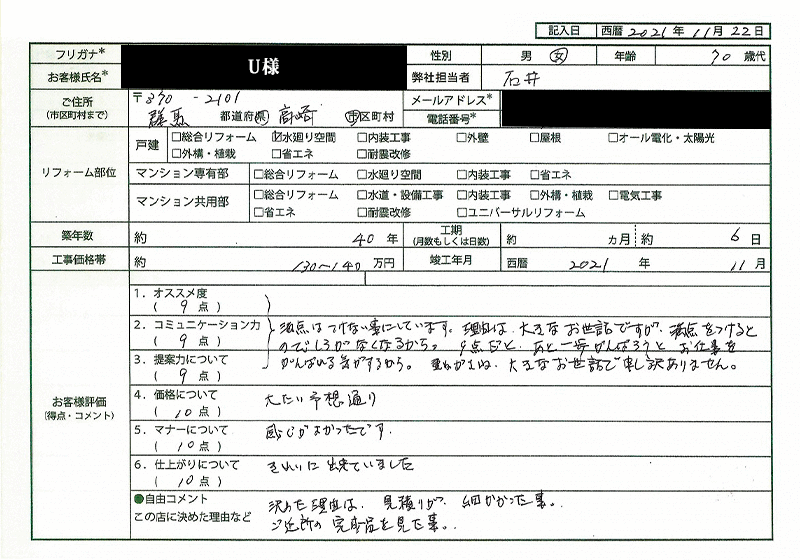 記入日 西暦 2021年 11月 22日
フリガナ* U様 性別 男 女 年齢 70歳代
お客様氏名* 弊社担当者 石井
ご住所 (市区町村まで) 〒370-2101 メールアドレス*
群馬 都道府県 高崎 市区町村 電話番号*
リフォーム部位 戸建 □総合リフォーム ☑水廻り空間 □内装工事 □外壁 □屋根 □オール電化・太陽光
□外構・植栽 □省エネ □耐震改修
マンション専有部 □総合リフォーム □水廻り空間 □内装工事 □省エネ
マンション共用部 □総合リフォーム □水道・設備工事 □内装工事 □外構・植栽 □電気工事
□省エネ □耐震改修 □ユニバーサルリフォーム
築年数 約 40年 工期 (月数もしくは日数) 約 カ月 約 6日
工事価格帯 約 130〜140万円 竣工年月 西暦 2021年 11月
お客様評価 (得点・コメント)
1. オススメ度
( 9 点 )
2. コミュニケーション力 満点はつけない事にしています。理由は、大きなお世話ですが、満点をつけると
( 9 点 ) のびしろがなくなるから。 9点だと、あと一歩がんばろうと お仕事を
3. 提案力について がんばれる気がするから。 大きなお世話で申し訳ありません。
( 9 点 )
4. 価格について だいたい予想通り
( 10 点 )
5. マナーについて 感じがよかったです.
( 10 点 )
6. 仕上がりについて きれいに出来ていました
( 10 点 )
●自由コメント 決めた理由は、見積りが、細かかった事。
この店に決めた理由など ご近所の完成品を見た事。